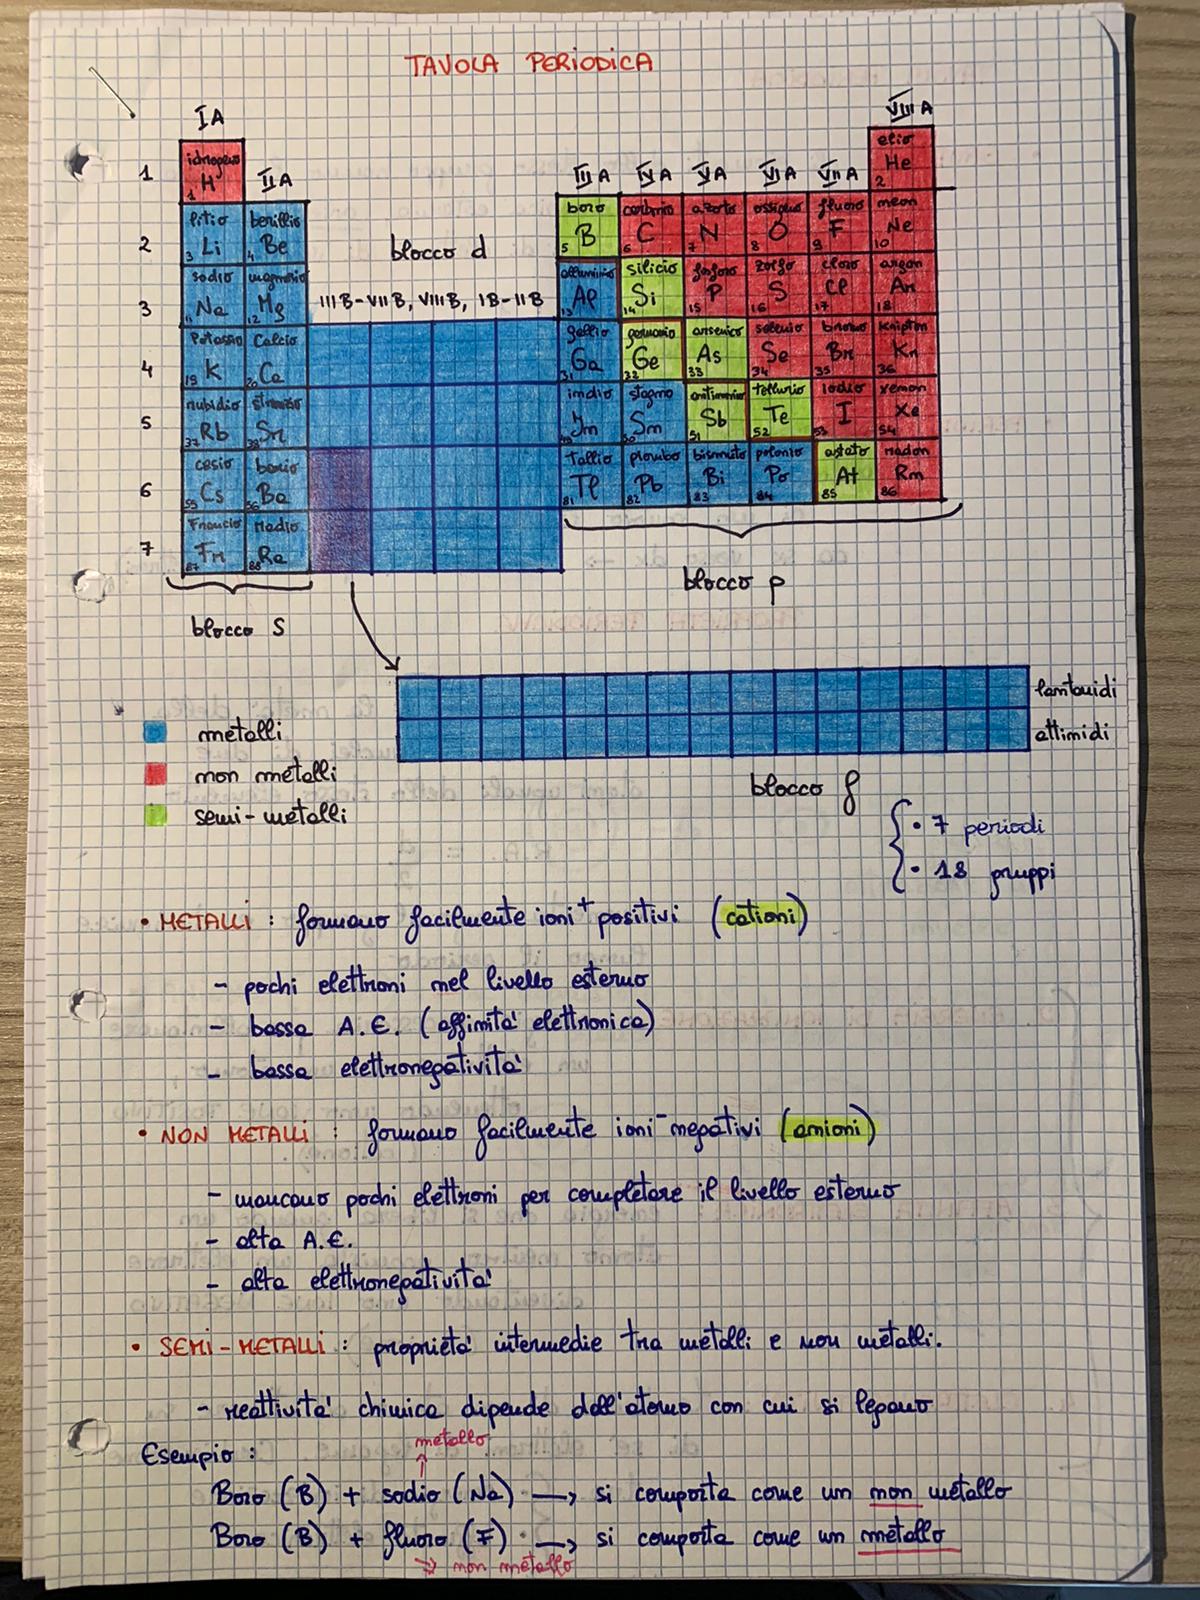 TAVOLA PERIODICA
IA
VIII A
1
idrogeno
H
1
II A
III A
IV A
V A
VI A
VII A
elio
He
2
2
litio
Li
3
berillio
Be
4
blocco d
boro
B
5
carbonio
C
6
azoto
N
7
ossigeno
O
8
fluoro
F
9
neon
Ne
10
3
sodio
Na
11
magnesio
Mg
12
III B-VII B, VIII B, IB-II B
alluminio
Al
13
silicio
Si
14
fosforo
P
15
zolfo
S
16
cloro
Cl
17
argon
Ar
18
4
Potassio
K
19
Calcio
Ca
20
gallio
Ga
31
germanio
Ge
32
arsenico
As
33
selenio
Se
34
bromo
Br
35
kripton
Kr
36
5
rubidio
Rb
37
stronzio
Sr
38
indio
In
49
stagno
Sn
50
antimonio
Sb
51
tellurio
Te
52
iodio
I
53
xenon
Xe
54
6
cesio
Cs
55
bario
Ba
56
Tallio
Tl
81
piombo
Pb
82
bismuto
Bi
83
polonio
Po
84
astato
At
85
radon
Rn
86
7
Francio
Fr
87
Radio
Ra
88
blocco s
blocco p
lantanidi
attinidi
blocco f
metalli
non metalli
semi-metalli
• 7 periodi
• 18 gruppi
• METALLI : formano facilmente ioni⁺ positivi (cationi)
- pochi elettroni nel livello esterno
- bassa A.E. (affinità elettronica)
- bassa elettronegatività
• NON METALLI : formano facilmente ioni⁻ negativi (anioni)
- mancano pochi elettroni per completare il livello esterno
- alta A.E.
- alta elettronegatività
• SEMI-METALLI : proprietà intermedie tra metalli e non metalli.
- reattività chimica dipende dall'atomo con cui si legano
Esempio :
metallo
Boro (B) + sodio (Na) → si comporta come un non metallo
Boro (B) + fluoro (F) → si comporta come un metallo
→ non metallo